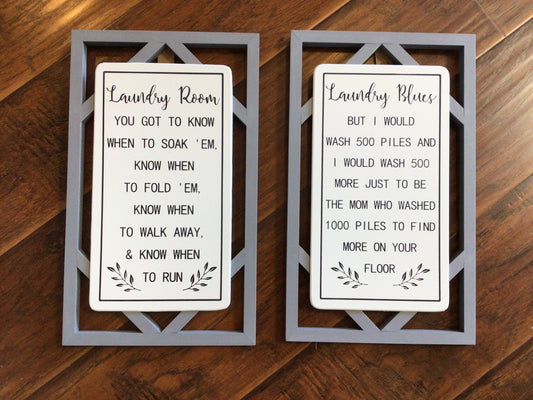 Laundry Room
YOU GOT TO KNOW
WHEN TO SOAK 'EM,
KNOW WHEN
TO FOLD 'EM,
KNOW WHEN
TO WALK AWAY,
& KNOW WHEN
TO RUN
Laundry Blues
BUT I WOULD
WASH 500 PILES AND
I WOULD WASH 500
MORE JUST TO BE
THE MOM WHO WASHED
1000 PILES TO FIND
MORE ON YOUR
FLOOR